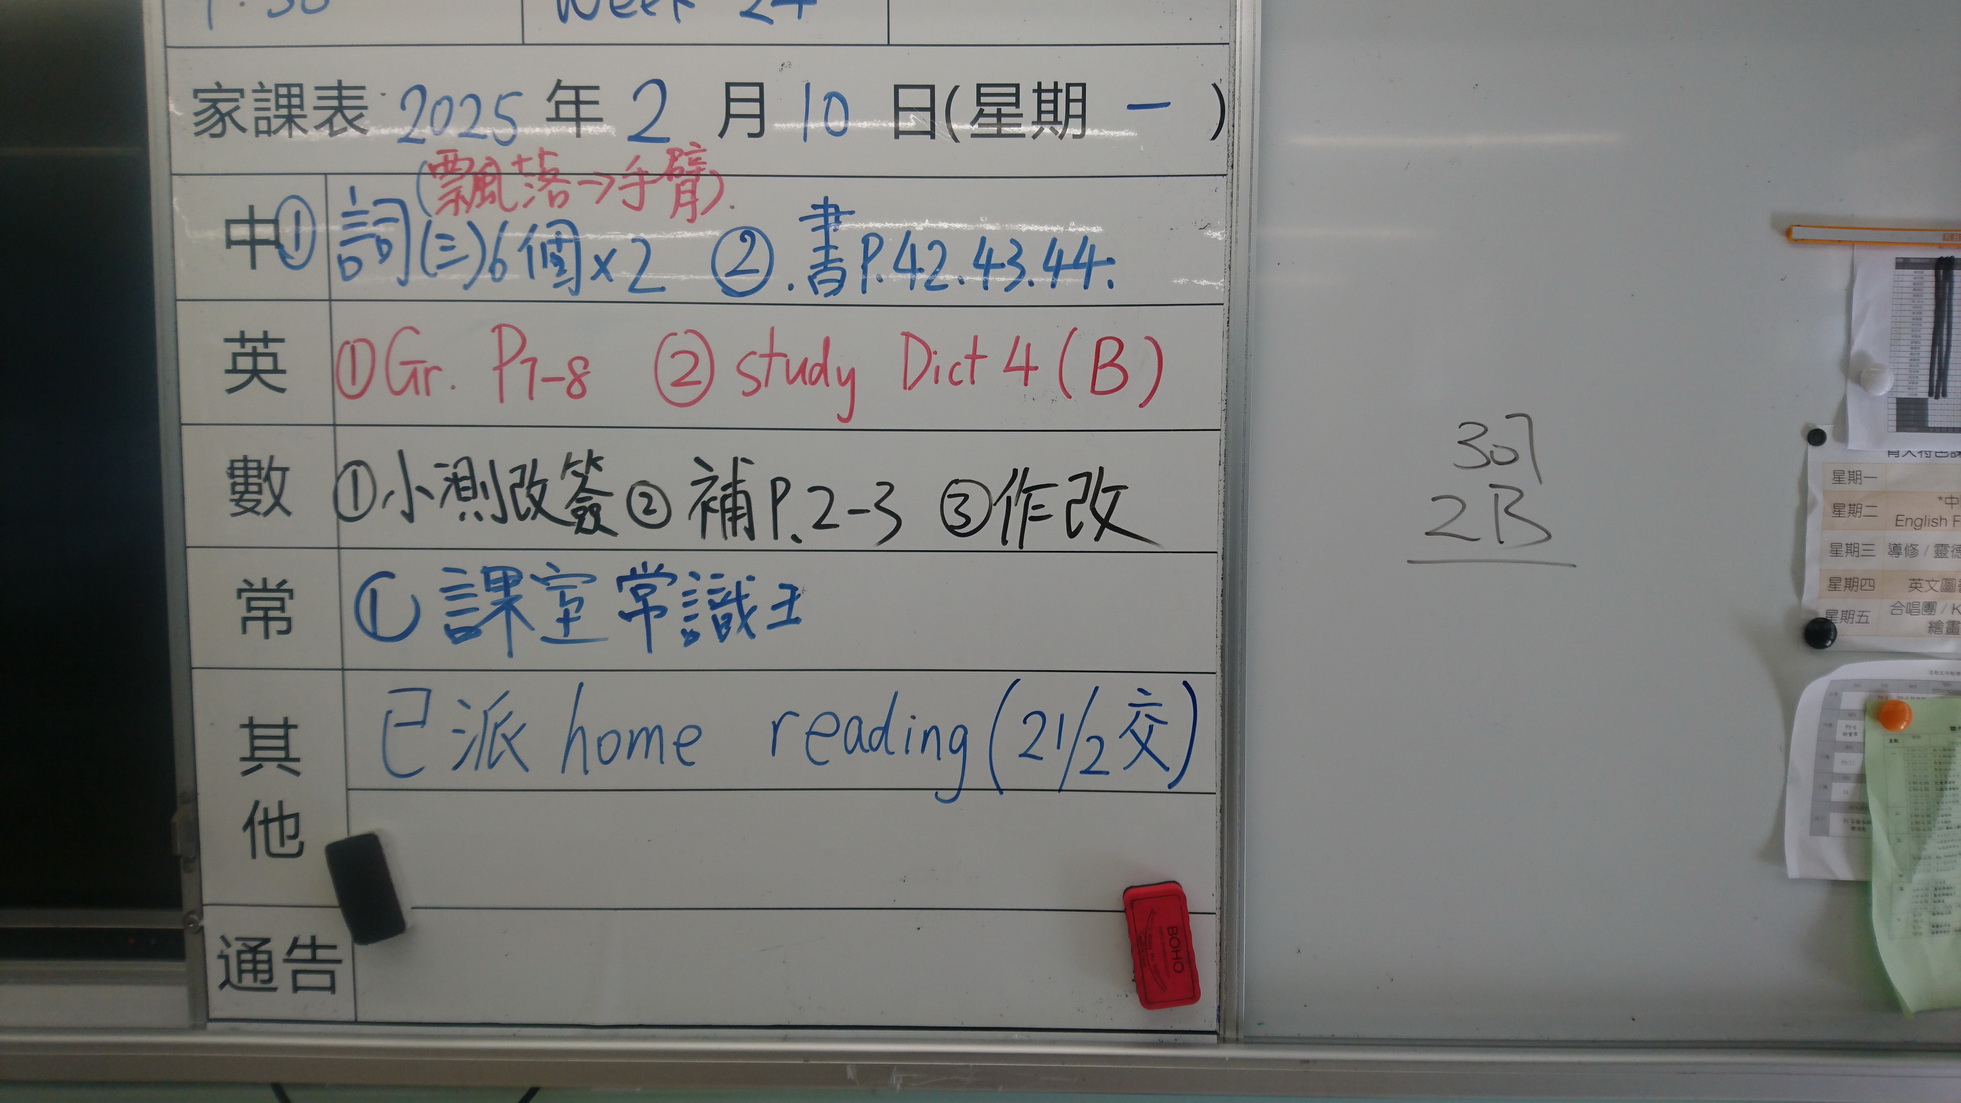 Week 24
家課表 2025 年 2 月 10 日(星期 一 )
(飄落→手臂).
中 ① 詞(三)6個×2 ②.書P.42.43.44.
英 ①Gr. P7-8 ② study Dict 4 (B)
數 ①小測改簽 ② 補P.2-3 ③作改
常 ① 課室常識王
其他 已派 home reading (21/2交)
通告
BOHO
307
2B
星期一
星期二 *中
English F
星期三 導修 / 靈
星期四 英文圖
星期五 合唱團 / K
繪畫